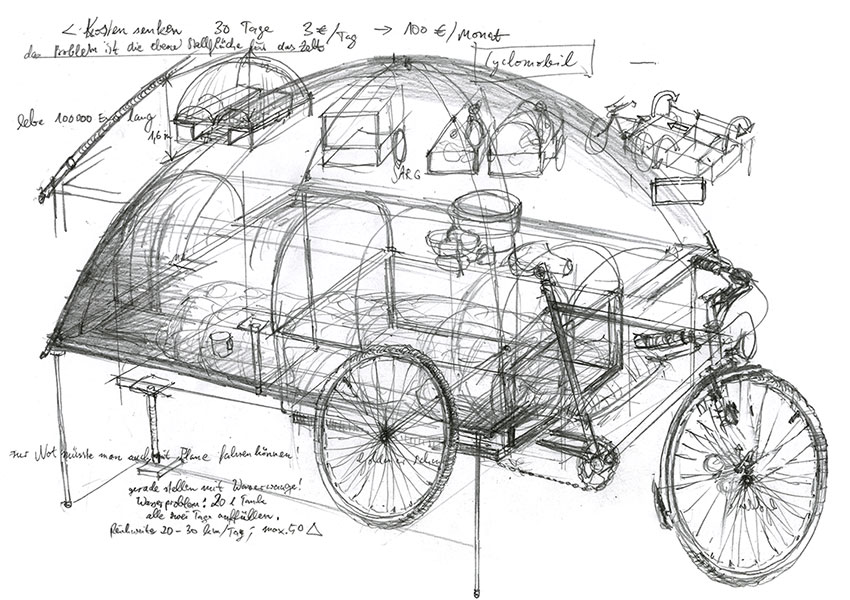 Kosten senken 30 Tage 3 €/Tag → 100 €/Monat
das Problem ist die ebene Stellfläche für das Zelt
Cyclomobil
lebe 100000 Euro lang
1,6 m
ARG
zur Not müsste man auch mit Plane fahren können!
gerade stellen mit Wasserwaage!
Wasserproblem: 20 l Tank
alle zwei Tage auffüllen.
Reichweite 20-30 km/Tag; max. 50